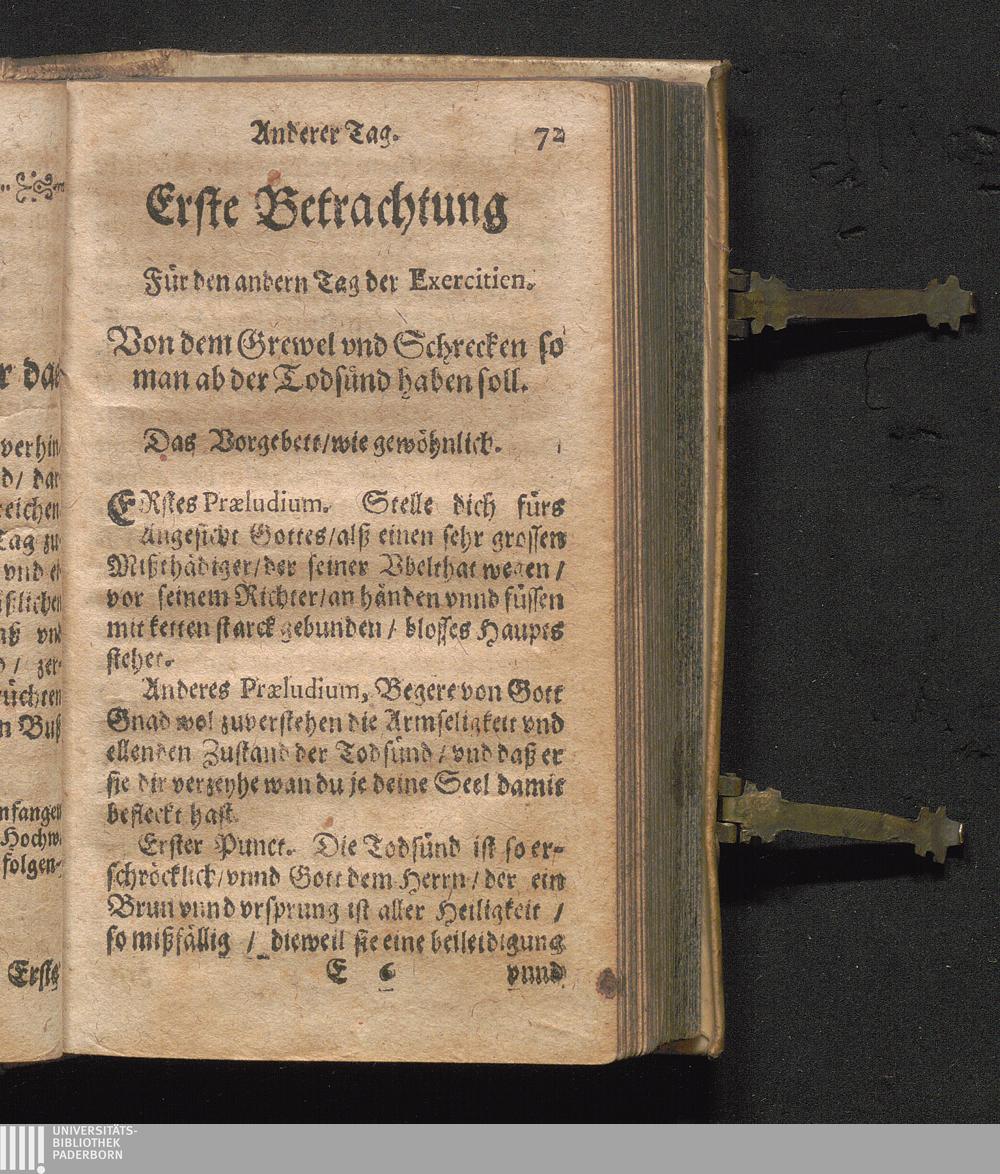 Anderer Tag. 72
Erste Betrachtung
Für den andern Tag der Exercitien.
Von dem Grewel vnd Schrecken so
man ab der Todsünd haben soll.
Das Vorgebett/wie gewöhnlich.
ERstes Præludium. Stelle dich fürs
Angesicht Gottes/alß einen sehr grossen
Mißthädiger/der seiner Vbelthat wegen/
vor seinem Richter/an händen vnnd füssen
mit ketten starck gebunden/ blosses Haupts
stehet.
Anderes Præludium, Begere von Gott
Gnad wol zuverstehen die Armseligkeit vnd
ellenden Zustand der Todsünd/vnd daß er
sie dir verzeyhe wan du je deine Seel damit
befleckt hast.
Erster Punct. Die Todsünd ist so er-
schröcklich/vnnd Gott dem Herrn/der ein
Brun vnnd vrsprung ist aller Heiligkeit /
so mißfällig / dieweil sie eine beileidigung
E 6 vnnd
verhin
d/ dar
reichen
Tag zu
vnd
ißlichen
zer-
rüchten
n Buß
nfangen
Hochw.
folgen-
Erste
UNIVERSITÄTS-
BIBLIOTHEK
PADERBORN